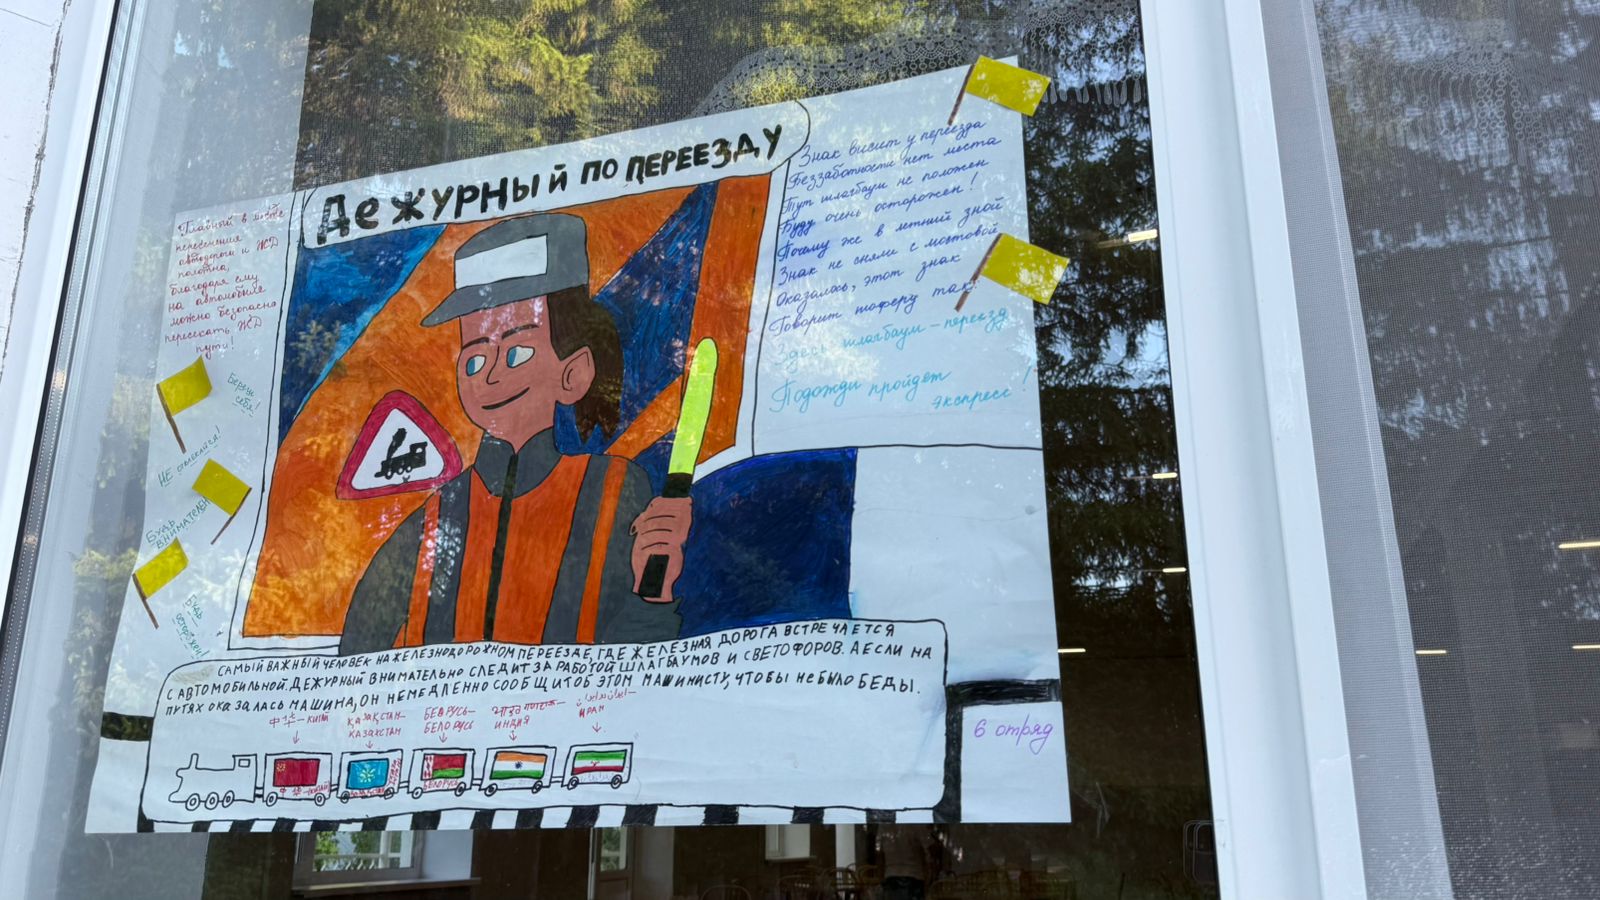 Дежурный по переезду
Главный в месте
пересечения
автодороги и ЖД
полотна,
благодаря ему
на автомобиле
можно безопасно
пересекать ЖД
пути!
Береги
себя!
Не отвлекайся!
Будь
внимателен
Будь
осторожен!
Знак висит у переезда
Беззаботности нет места
Тут шлагбаум не положен
Буду очень осторожен!
Почему же в летний зной
Знак не сняли с мостовой
Оказалось, этот знак
Говорит шоферу так:
Здесь шлагбаум – переезд
Подожди пройдет
экспресс!
Самый важный человек на железнодорожном переезде, где железная дорога встречается
с автомобильной. Дежурный внимательно следит за работой шлагбаумов и светофоров. А если на
путях оказалась машина, он немедленно сообщит об этом машинисту, чтобы не было беды.
Китай
Қазақстан–
Казахстан
Беларусь–
Белорусь
Индия
Иран
Белорусь
6 отряд